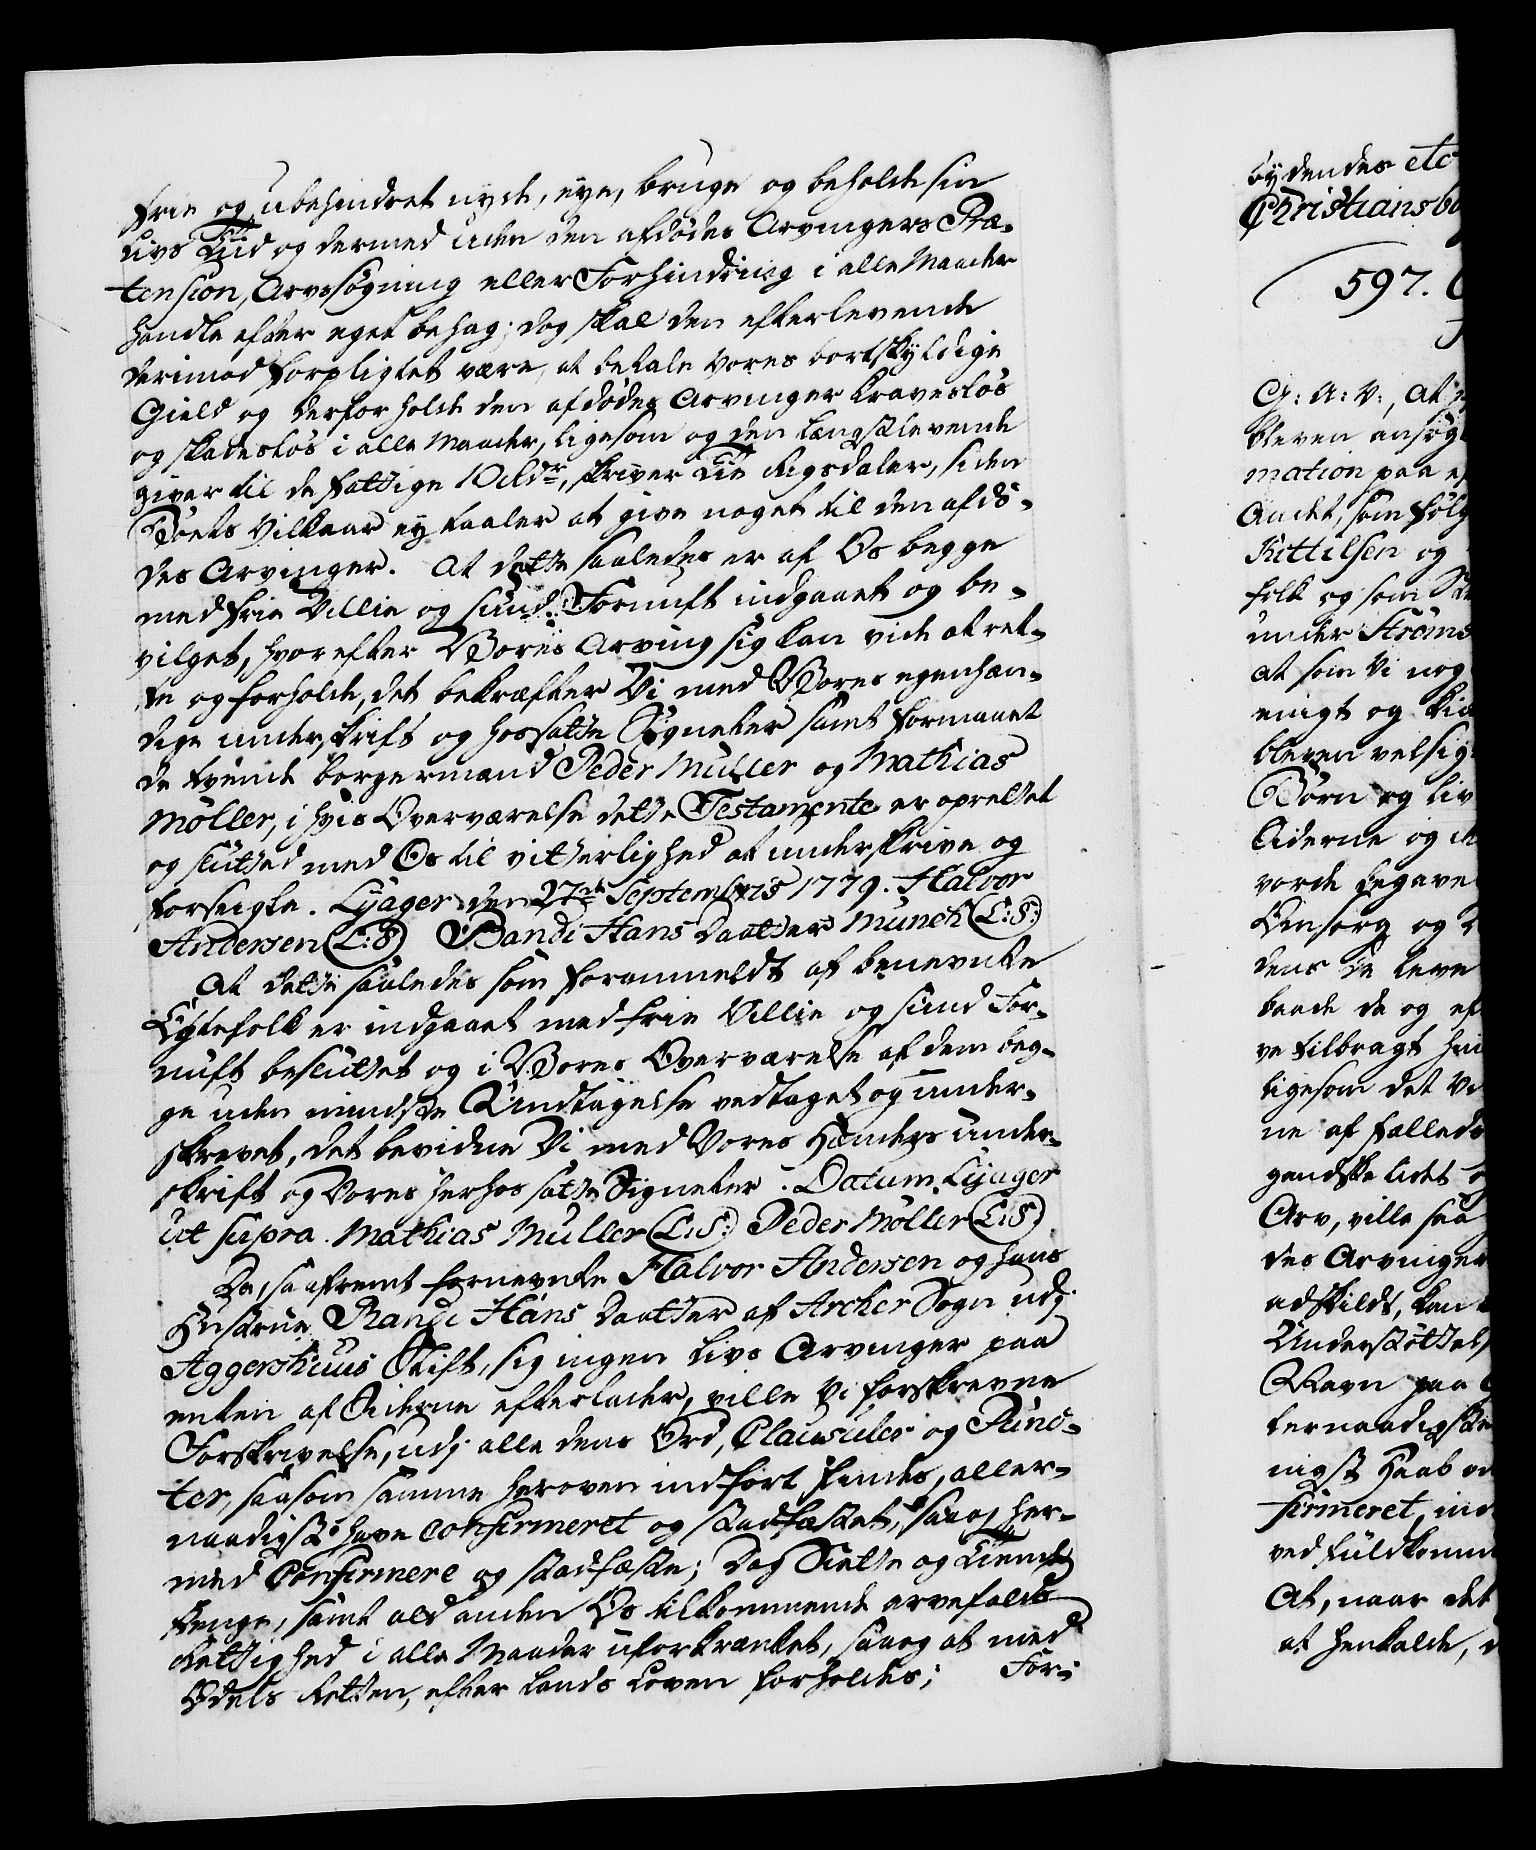 frie og ubehindret nyde, eye, bruge og beholde sin
Livs Tiid og dermed uden den afdødes Arvingers Præ-
tension, Arvssøgning eller Forhindring i alle Maader
handle efter eget behag; dog skal den efterlevende
derimod forpligtet være, at betale vores bortskyldige
Gield og derfor holde den afdødes Arvinger Kravesløs
og skadesløs i alle Maader, ligesom og den længstlevende
giver til de fattige 10 Rdr, skriver Tie Rigsdaler, siden
Boets Vilkaar ey taaler at give noget til den afdø-
des Arvinger. At dette saaledes er af Os begge
med frie Villie og sund Fornuft indgaaet og be-
vilget, hvorefter Vores Arving sig kan vide at ret-
te og forholde, det bekræfter Vi med Vores egenhæn-
dige underskrift og hossatte Signeter samt formaaet
de tvende borgermænd Peder Muller og Mathias
Møller, i hvis Overværelse dette Testamente er oprettet
og slutted med Os til vitterlighed at underskrive og
forseigle. Lyager den 27de Septembris 1779. Halvor
Andersen (L:S:) Randi Hans Daatter Munch (L:S:)
At dette saaledes som foranmeldt af benevnte
Egtefolk er indgaaet med frie Villie og sund For-
nuft besluttet og i Vores Overværelse af dem beg-
ge uden mindste Undtagelse vedtaget og under-
skrevet, det bevidne Vi med Vores Hænders under-
skrift og Vores herhos satte Signeter. Datum Lyager
ut supra. Mathias Muller (L:S:) Peder Møller (L:S:)
Da, saafremt fornevnte Halvor Andersen og hans
Hustrue Randi Hans Daatter af Archer Sogn udj
Aggershuus Stift, sig ingen Livs Arvinger paa
enten af Siderne efterlader, ville Vi forskrevne
Forskrivelse, udj alle dens Ord, Clausuler og Punc-
ter, saasom samme heroven indført findes, aller-
naadigst have confirmeret og stadfæstet, saa og her-
med Confirmere og stadfæste; Dog Siette og Tiende
Penge, samt ald anden Os tilkommende arvefalds
Rettighed i alle Maader uforkrænket, saa og at med
Odels Retten, efter Lands Loven forholdes; For-
bydendes etc
Christiansbo
597.
G: A: V:, At
bleven ansøgt
mation paa
Andet, som følg
Kittilsen og
folk og som
under Strøms
at som Vi nog
enigt og
bleven velsig
Børn og Liv
Tiderne og
vorde begave
Omsorg og
dens de leve
baade de og ef
ve tilbragt
ligesom det
ne af fælleds
gandske lidet
Arv, ville saa
des Arvinger
adskildt, kan
Understøttels
Navn paa
lernaadigste
nigst Haab
firmeret, in
ved fuldkomm
At, naar det
at henkalde,